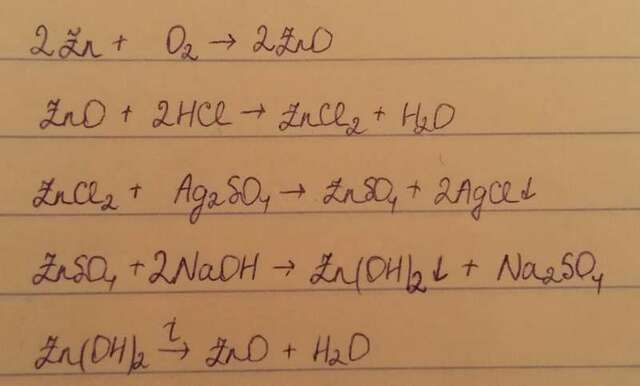 2Zn + O₂ → 2ZnO
ZnO + 2HCl → ZnCl₂ + H₂O
ZnCl₂ + Ag₂SO₄ → ZnSO₄ + 2AgCl↓
ZnSO₄ + 2NaOH → Zn(OH)₂↓ + Na₂SO₄
Zn(OH)₂ →ᵗ ZnO + H₂O